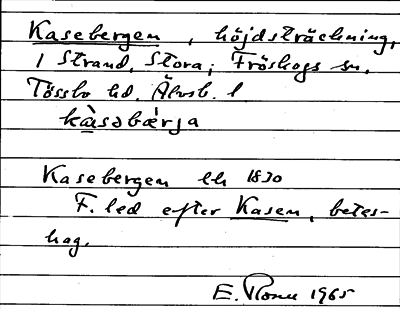 Kasebergen, höjdsträckning,
i Strand, Stora; Fröskogs sn,
Tössbo hd. Älvsb. l
kàsəbæ̀rja
Kasebergen lh 1830
F. led efter Kasen, betes-
hag.
E. 1965